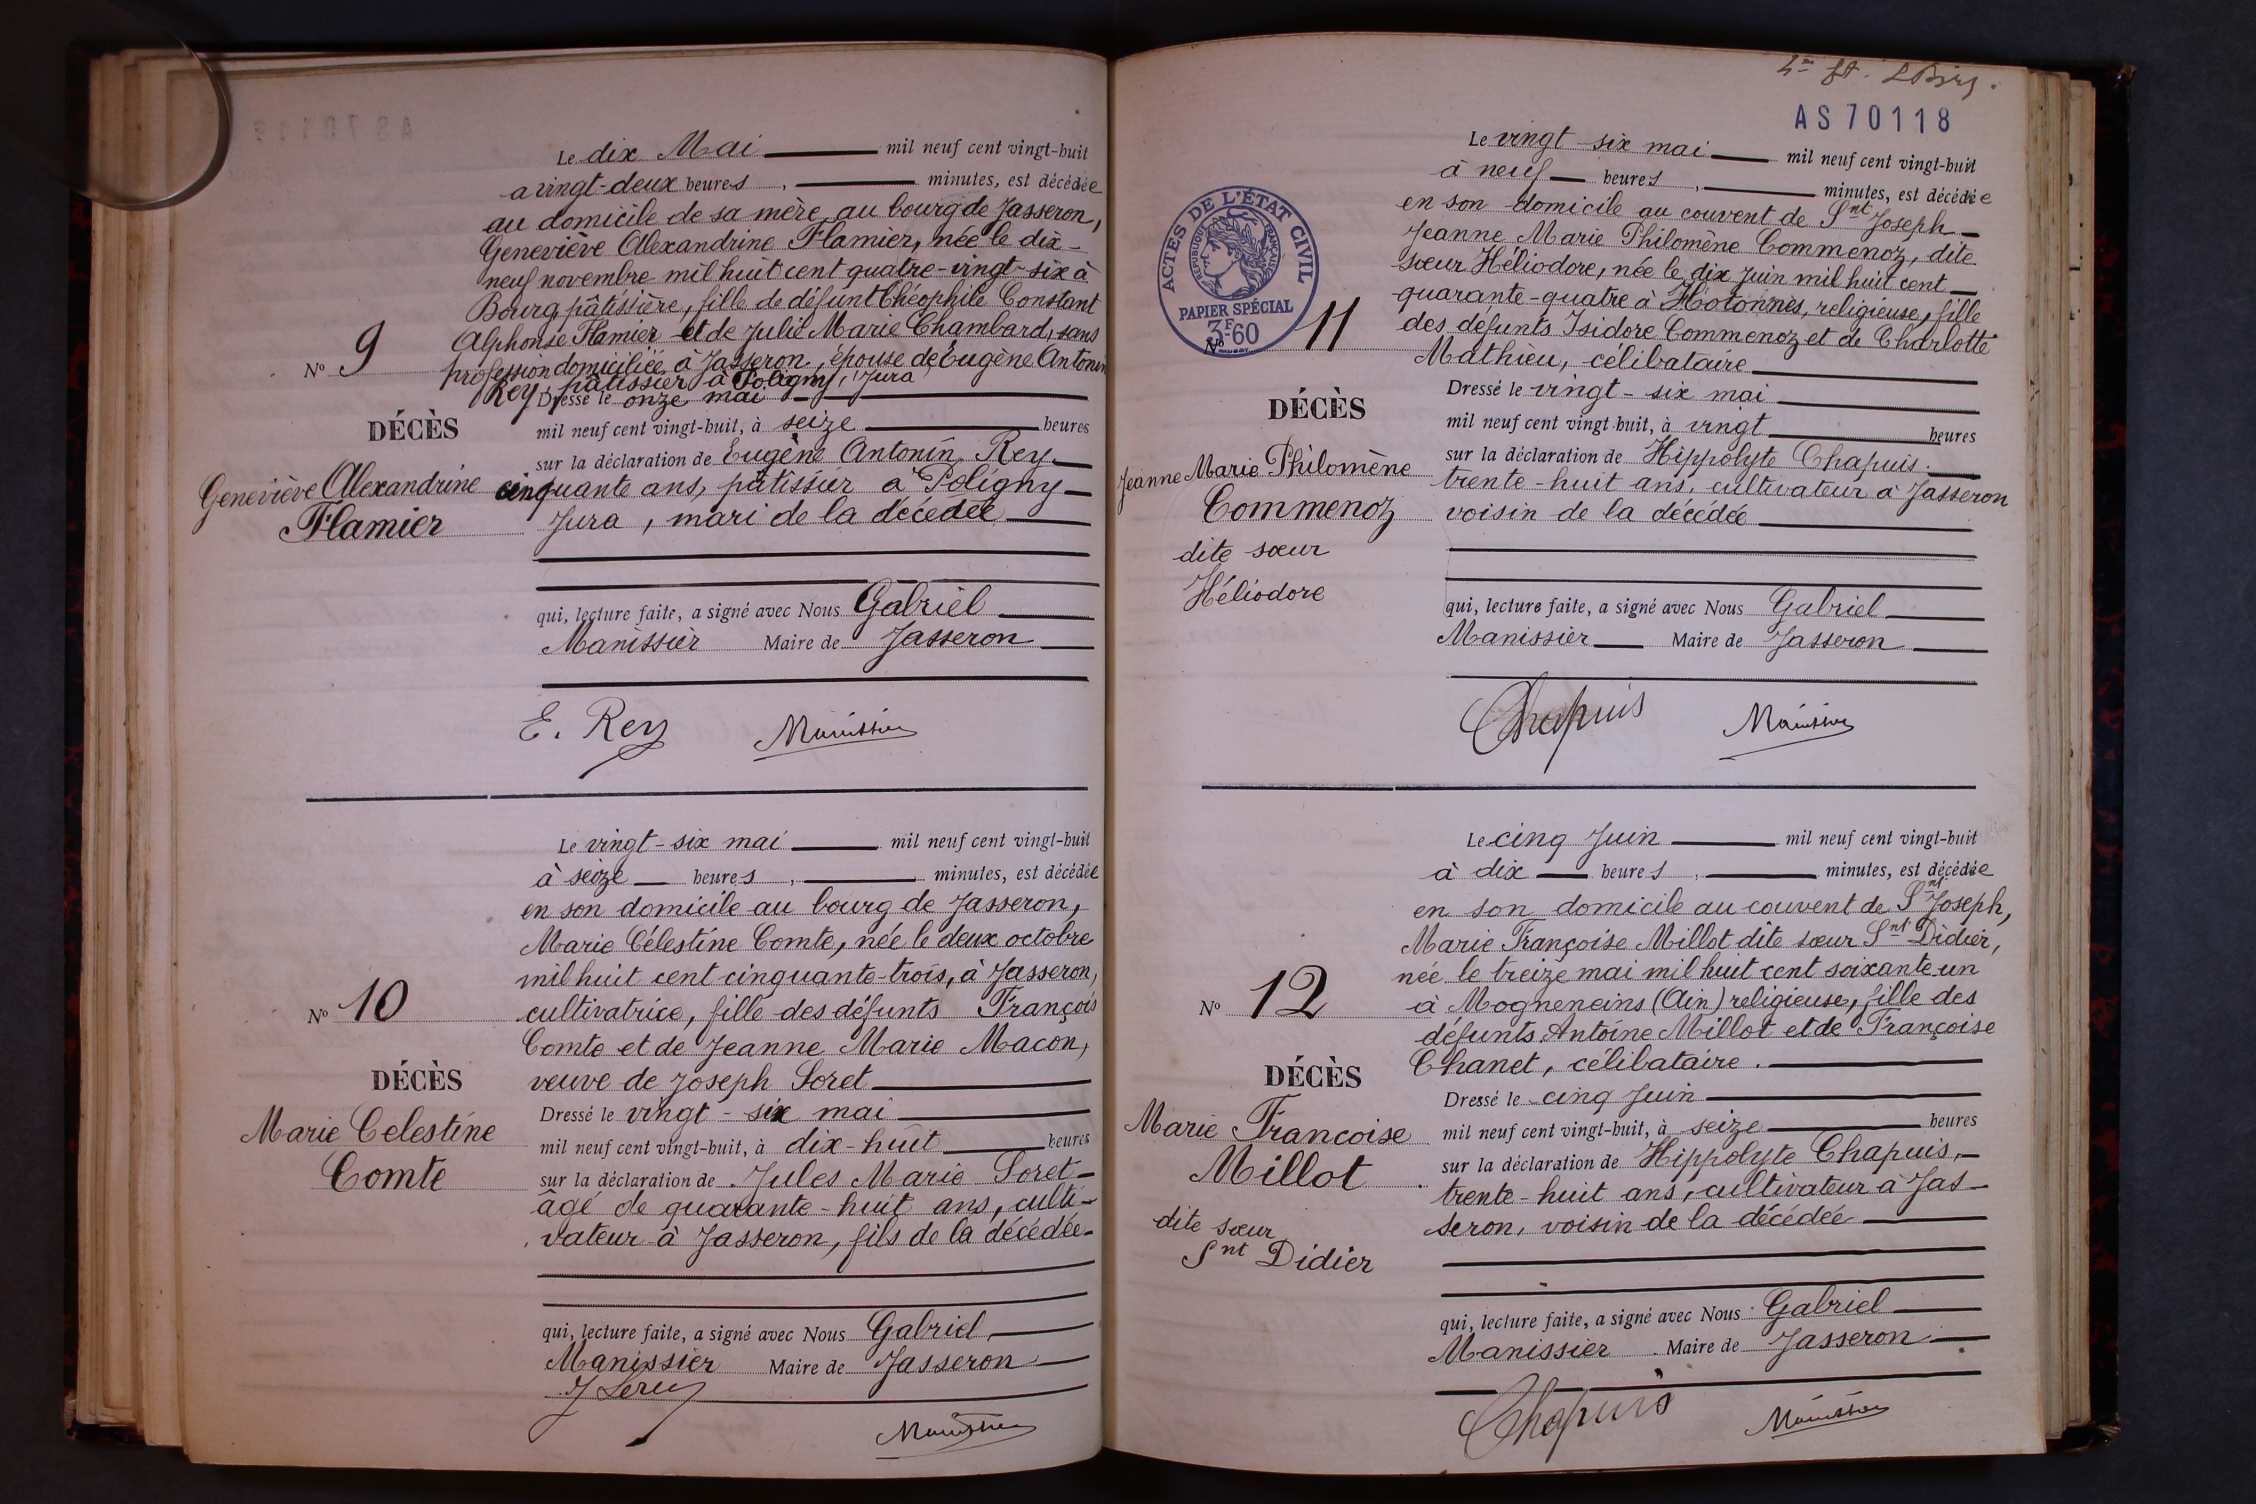 Le dix Mai mil neuf cent vingt-huit
a vingt-deux heures, minutes, est décédée
au domicile de sa mère au bourg de Jasseron,
Geneviève Alexandrine Flamier, née le dix-
neuf novembre mil huit cent quatre-vingt-six à
Bourg, pâtissière, fille de défunt Théophile Constant
Alphonse Flamier et de Julie Marie Chambard, sans
profession domiciliée à Jasseron, épouse de Eugène Antonin
Rey, pâtissier à Poligny, Jura
Nº 9
DÉCÈS
Geneviève Alexandrine
Flamier
Dressé le onze mai
mil neuf cent vingt-huit, à seize heures
sur la déclaration de Eugène Antonin Rey
cinquante ans, pâtissier à Poligny
Jura, mari de la décédée
qui, lecture faite, a signé avec Nous Gabriel
Manissier Maire de Jasseron
E. Rey Manissier
Le vingt-six mai mil neuf cent vingt-huit
à seize heures, minutes, est décédée
en son domicile au bourg de Jasseron,
Marie Célestine Comte, née le deux octobre
mil huit cent cinquante-trois, à Jasseron,
cultivatrice, fille des défunts François
Comte et de Jeanne Marie Macon,
veuve de Joseph Loret
Nº 10
DÉCÈS
Marie Celestine
Comte
Dressé le vingt-six mai
mil neuf cent vingt-huit, à dix-huit heures
sur la déclaration de Jules Marie Loret
âgé de quarante-huit ans, culti-
vateur à Jasseron, fils de la décédée
qui, lecture faite, a signé avec Nous Gabriel
Manissier Maire de Jasseron
Manissier
AS 70118
Le vingt-six mai mil neuf cent vingt-huit
à neuf heures, minutes, est décédée
en son domicile au couvent de Snt Joseph
Jeanne Marie Philomène Commenoz, dite
sœur Héliodore, née le dix Juin mil huit cent
quarante-quatre à Hotonnes, religieuse, fille
des défunts Isidore Commenoz et de Charlotte
Mathieu, célibataire
ACTES DE L'ÉTAT CIVIL
RÉPUBLIQUE FRANÇAISE
PAPIER SPÉCIAL
3F-60
Nº 11
DÉCÈS
Jeanne Marie Philomène
Commenoz
dite sœur
Héliodore
Dressé le vingt-six mai
mil neuf cent vingt-huit, à vingt heures
sur la déclaration de Hippolyte Chapuis
trente-huit ans, cultivateur à Jasseron
voisin de la décédée
qui, lecture faite, a signé avec Nous Gabriel
Manissier Maire de Jasseron
Chapuis Manissier
Le cinq Juin mil neuf cent vingt-huit
à dix heures, minutes, est décédée
en son domicile au couvent de Snt Joseph,
Marie Françoise Millot dite sœur Snt Didier,
née le treize mai mil huit cent soixante-un
à Mogneneins (Ain) religieuse, fille des
défunts Antoine Millot et de Françoise
Chanet, célibataire.
Nº 12
DÉCÈS
Marie Francoise
Millot
dite sœur
Snt Didier
Dressé le cinq Juin
mil neuf cent vingt-huit, à seize heures
sur la déclaration de Hippolyte Chapuis,
trente-huit ans, cultivateur à Jas-
seron, voisin de la décédée
qui, lecture faite, a signé avec Nous Gabriel
Manissier Maire de Jasseron
Chapuis Manissier